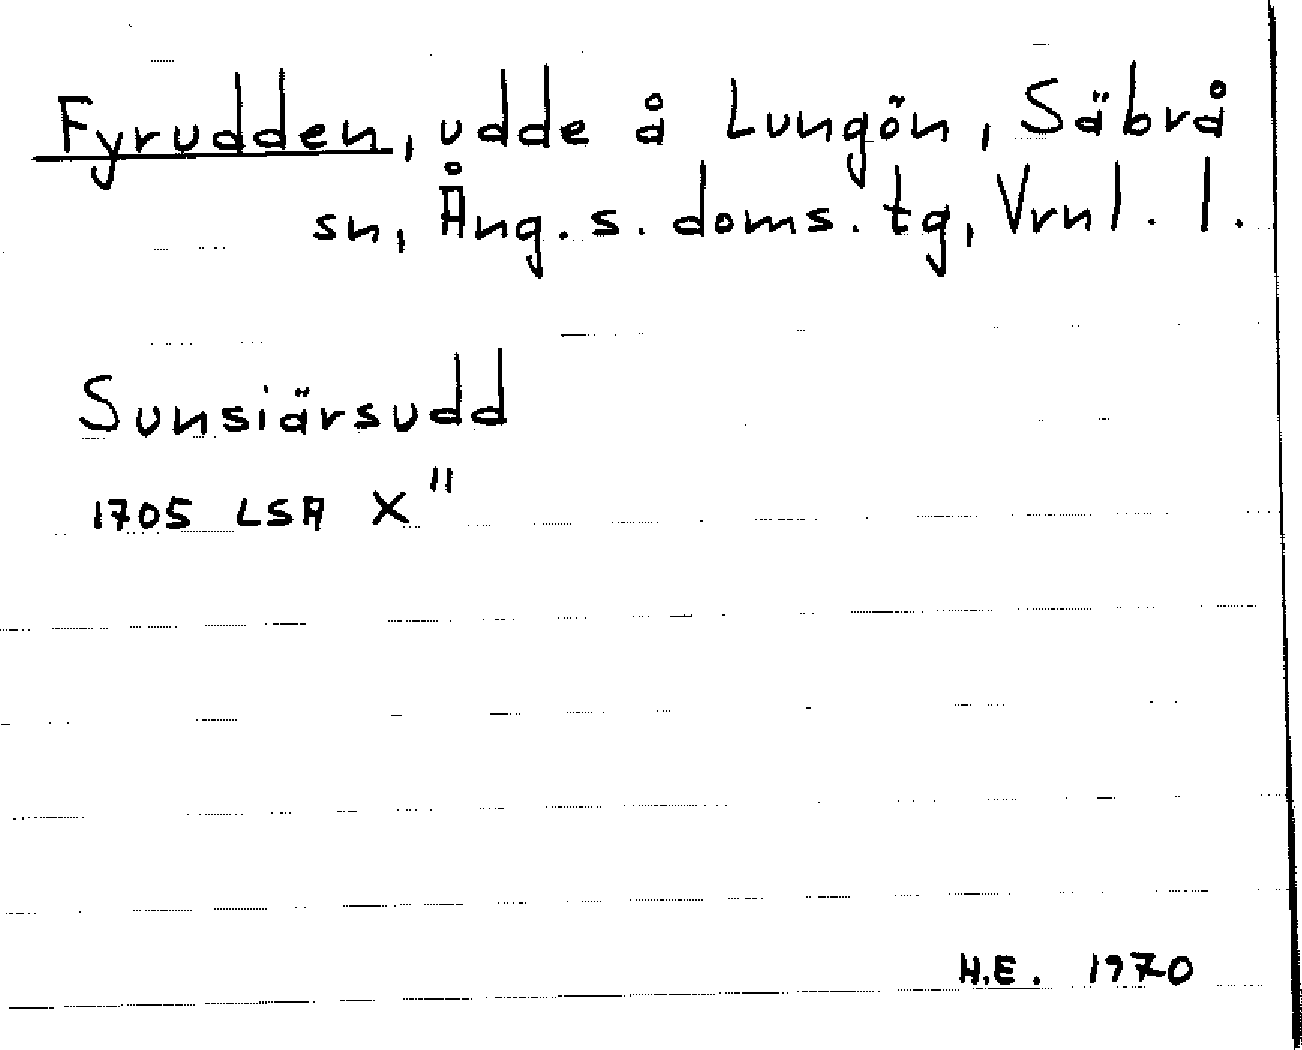 Fyrudden, udde å Lungön, Säbrå
sn, Ång. s. doms. tg, Vrnl. l.
Sunsiärsudd
1705 LSA X"
H.E. 1970